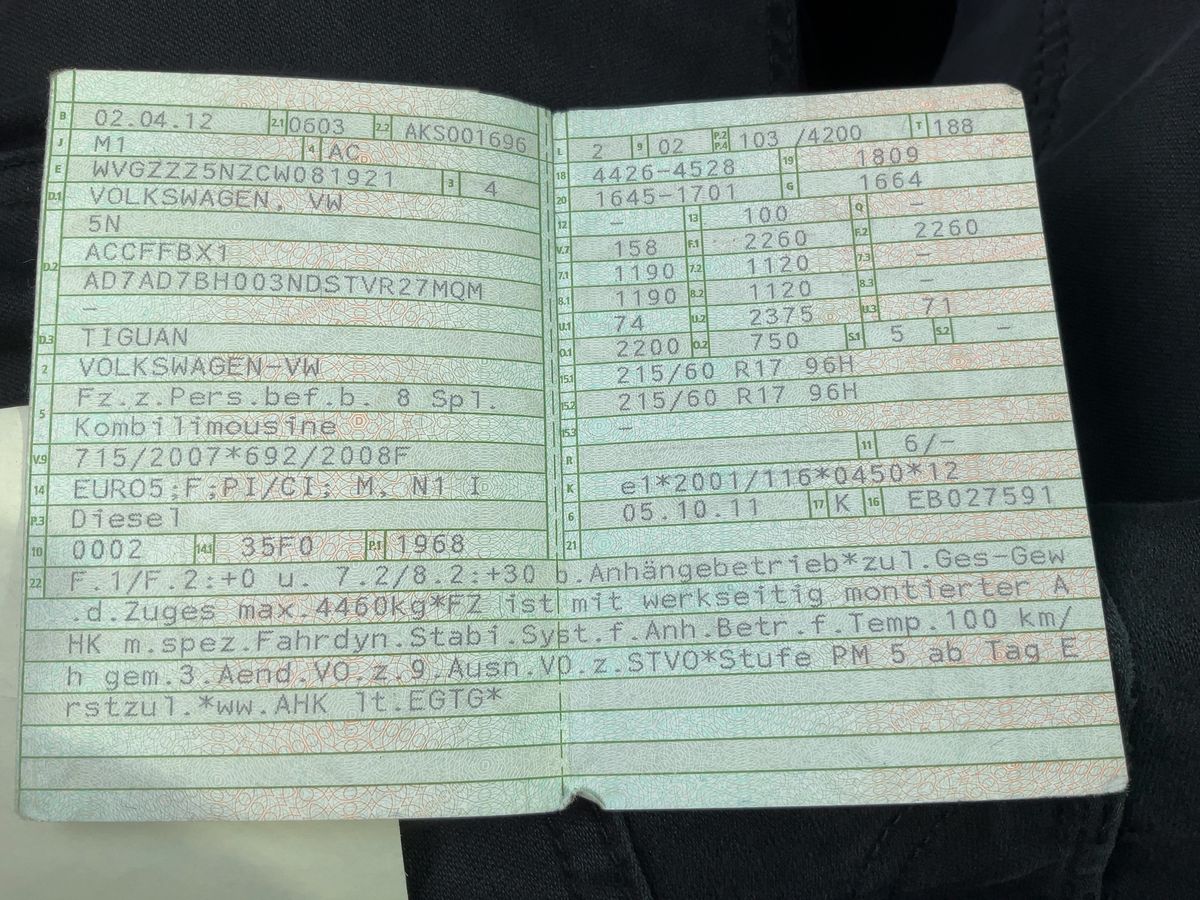 B 02.04.12 2.1 0603 2.2 AKS001696
J M1 4 AC
E WVGZZZ5NZCW081921 3 4
D.1 VOLKSWAGEN, VW
5N
D.2 ACCFFBX1
AD7AD7BH003NDSTVR27MQM
–
D.3 TIGUAN
2 VOLKSWAGEN-VW
5 Fz.z.Pers.bef.b. 8 Spl.
Kombilimousine
V.9 715/2007*692/2008F
14 EURO5;F;PI/CI; M, N1 I
P.3 Diesel
10 0002 14.1 35F0 P.1 1968
L 2 9 02 P.2 P.4 103 /4200 T 188
18 4426-4528 19 1809
20 1645-1701 G 1664
12 – 13 100 Q –
V.7 158 F.1 2260 F.2 2260
7.1 1190 7.2 1120 7.3 –
8.1 1190 8.2 1120 8.3 –
U.1 74 U.2 2375 U.3 71
O.1 2200 O.2 750 S.1 5 S.2 –
15.1 215/60 R17 96H
15.2 215/60 R17 96H
15.3 –
R 11 6/–
K e1*2001/116*0450*12
6 05.10.11 17 K 16 EB027591
21
22 F.1/F.2:+0 u. 7.2/8.2:+30 b.Anhängebetrieb*zul.Ges-Gew
.d.Zuges max.4460kg*FZ ist mit werkseitig montierter A
HK m.spez.Fahrdyn.Stabi.Syst.f.Anh.Betr.f.Temp.100 km/
h gem.3.Aend.VO.z.9.Ausn.VO.z.STVO*Stufe PM 5 ab Tag E
rstzul.*ww.AHK lt.EGTG*